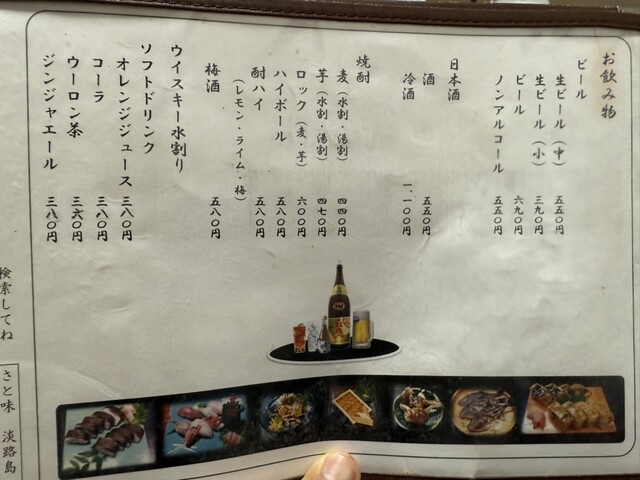 お飲み物
ビール
生ビール（中） 五五〇円
生ビール（小） 三九〇円
ビール 六九〇円
ノンアルコール 五五〇円
日本酒
酒 五五〇円
冷酒 一、一〇〇円
焼酎
麦（水割・湯割） 四四〇円
芋（水割・湯割） 四七〇円
ロック（麦・芋） 六〇〇円
ハイボール 五八〇円
酎ハイ 五八〇円
（レモン・ライム・梅）
梅酒 五八〇円
ウイスキー水割り
ソフトドリンク
オレンジジュース 三八〇円
コーラ 三八〇円
ウーロン茶 三六〇円
ジンジャエール 三八〇円
検索してね
さと味 淡路島